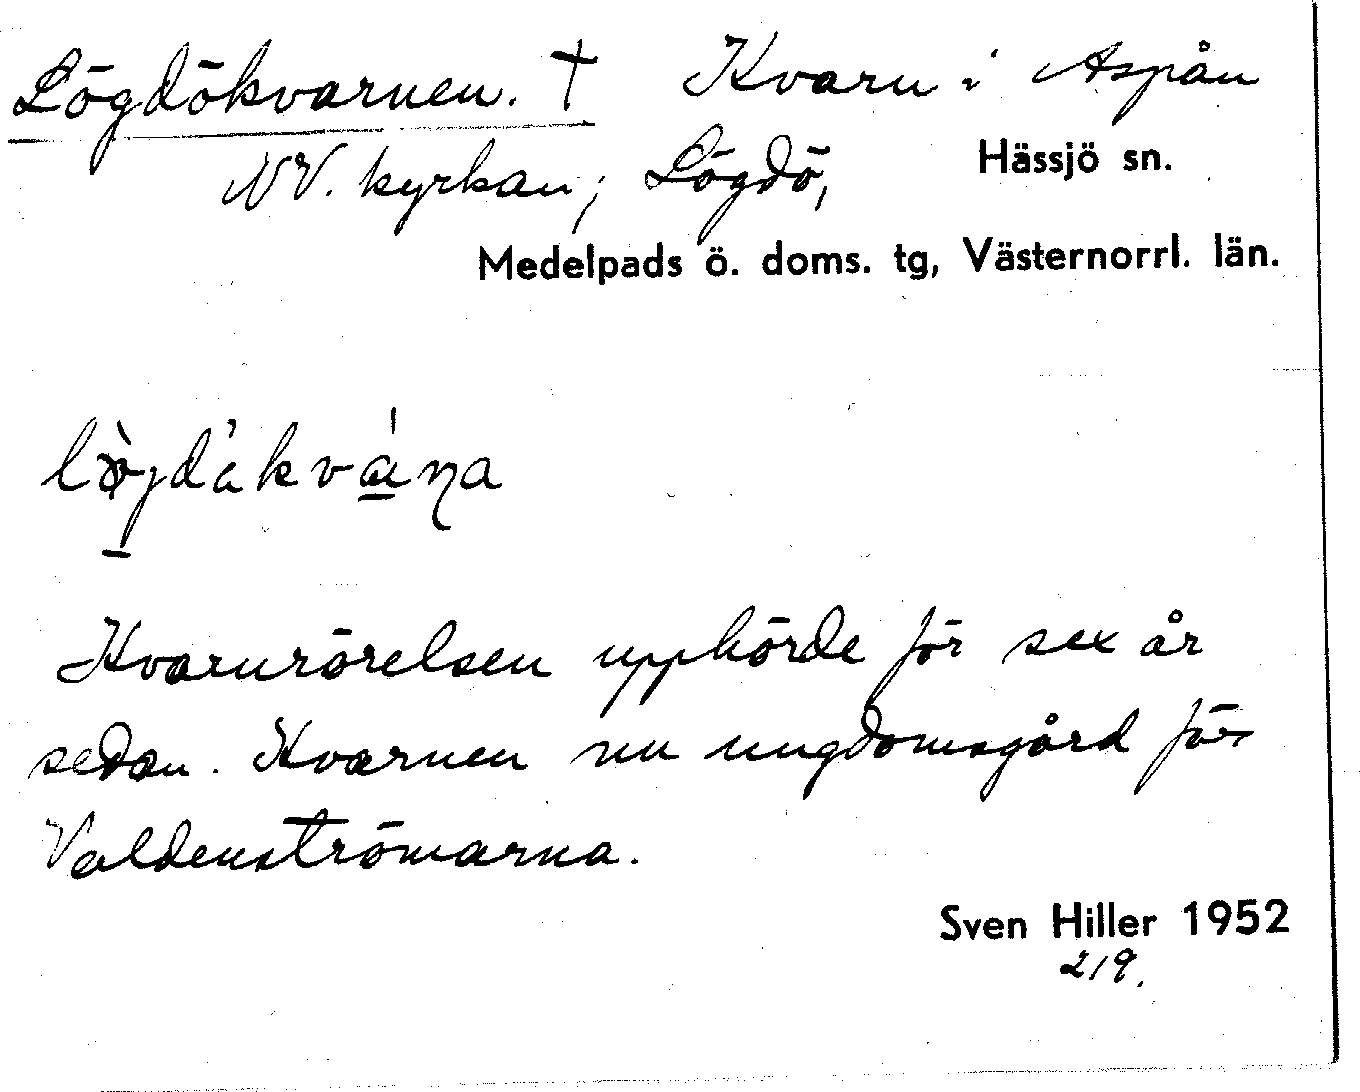 Lögdökvarnen. † Kvarn i Aspån
NV. kyrkan; Lögdö, Hässjö sn.
Medelpads ö. doms. tg, Västernorrl. län.
Kvarnrörelsen upphörde för sex år
sedan. Kvarnen nu ungdomsgård för
Valdenströmarna.
Sven Hiller 1952
219.